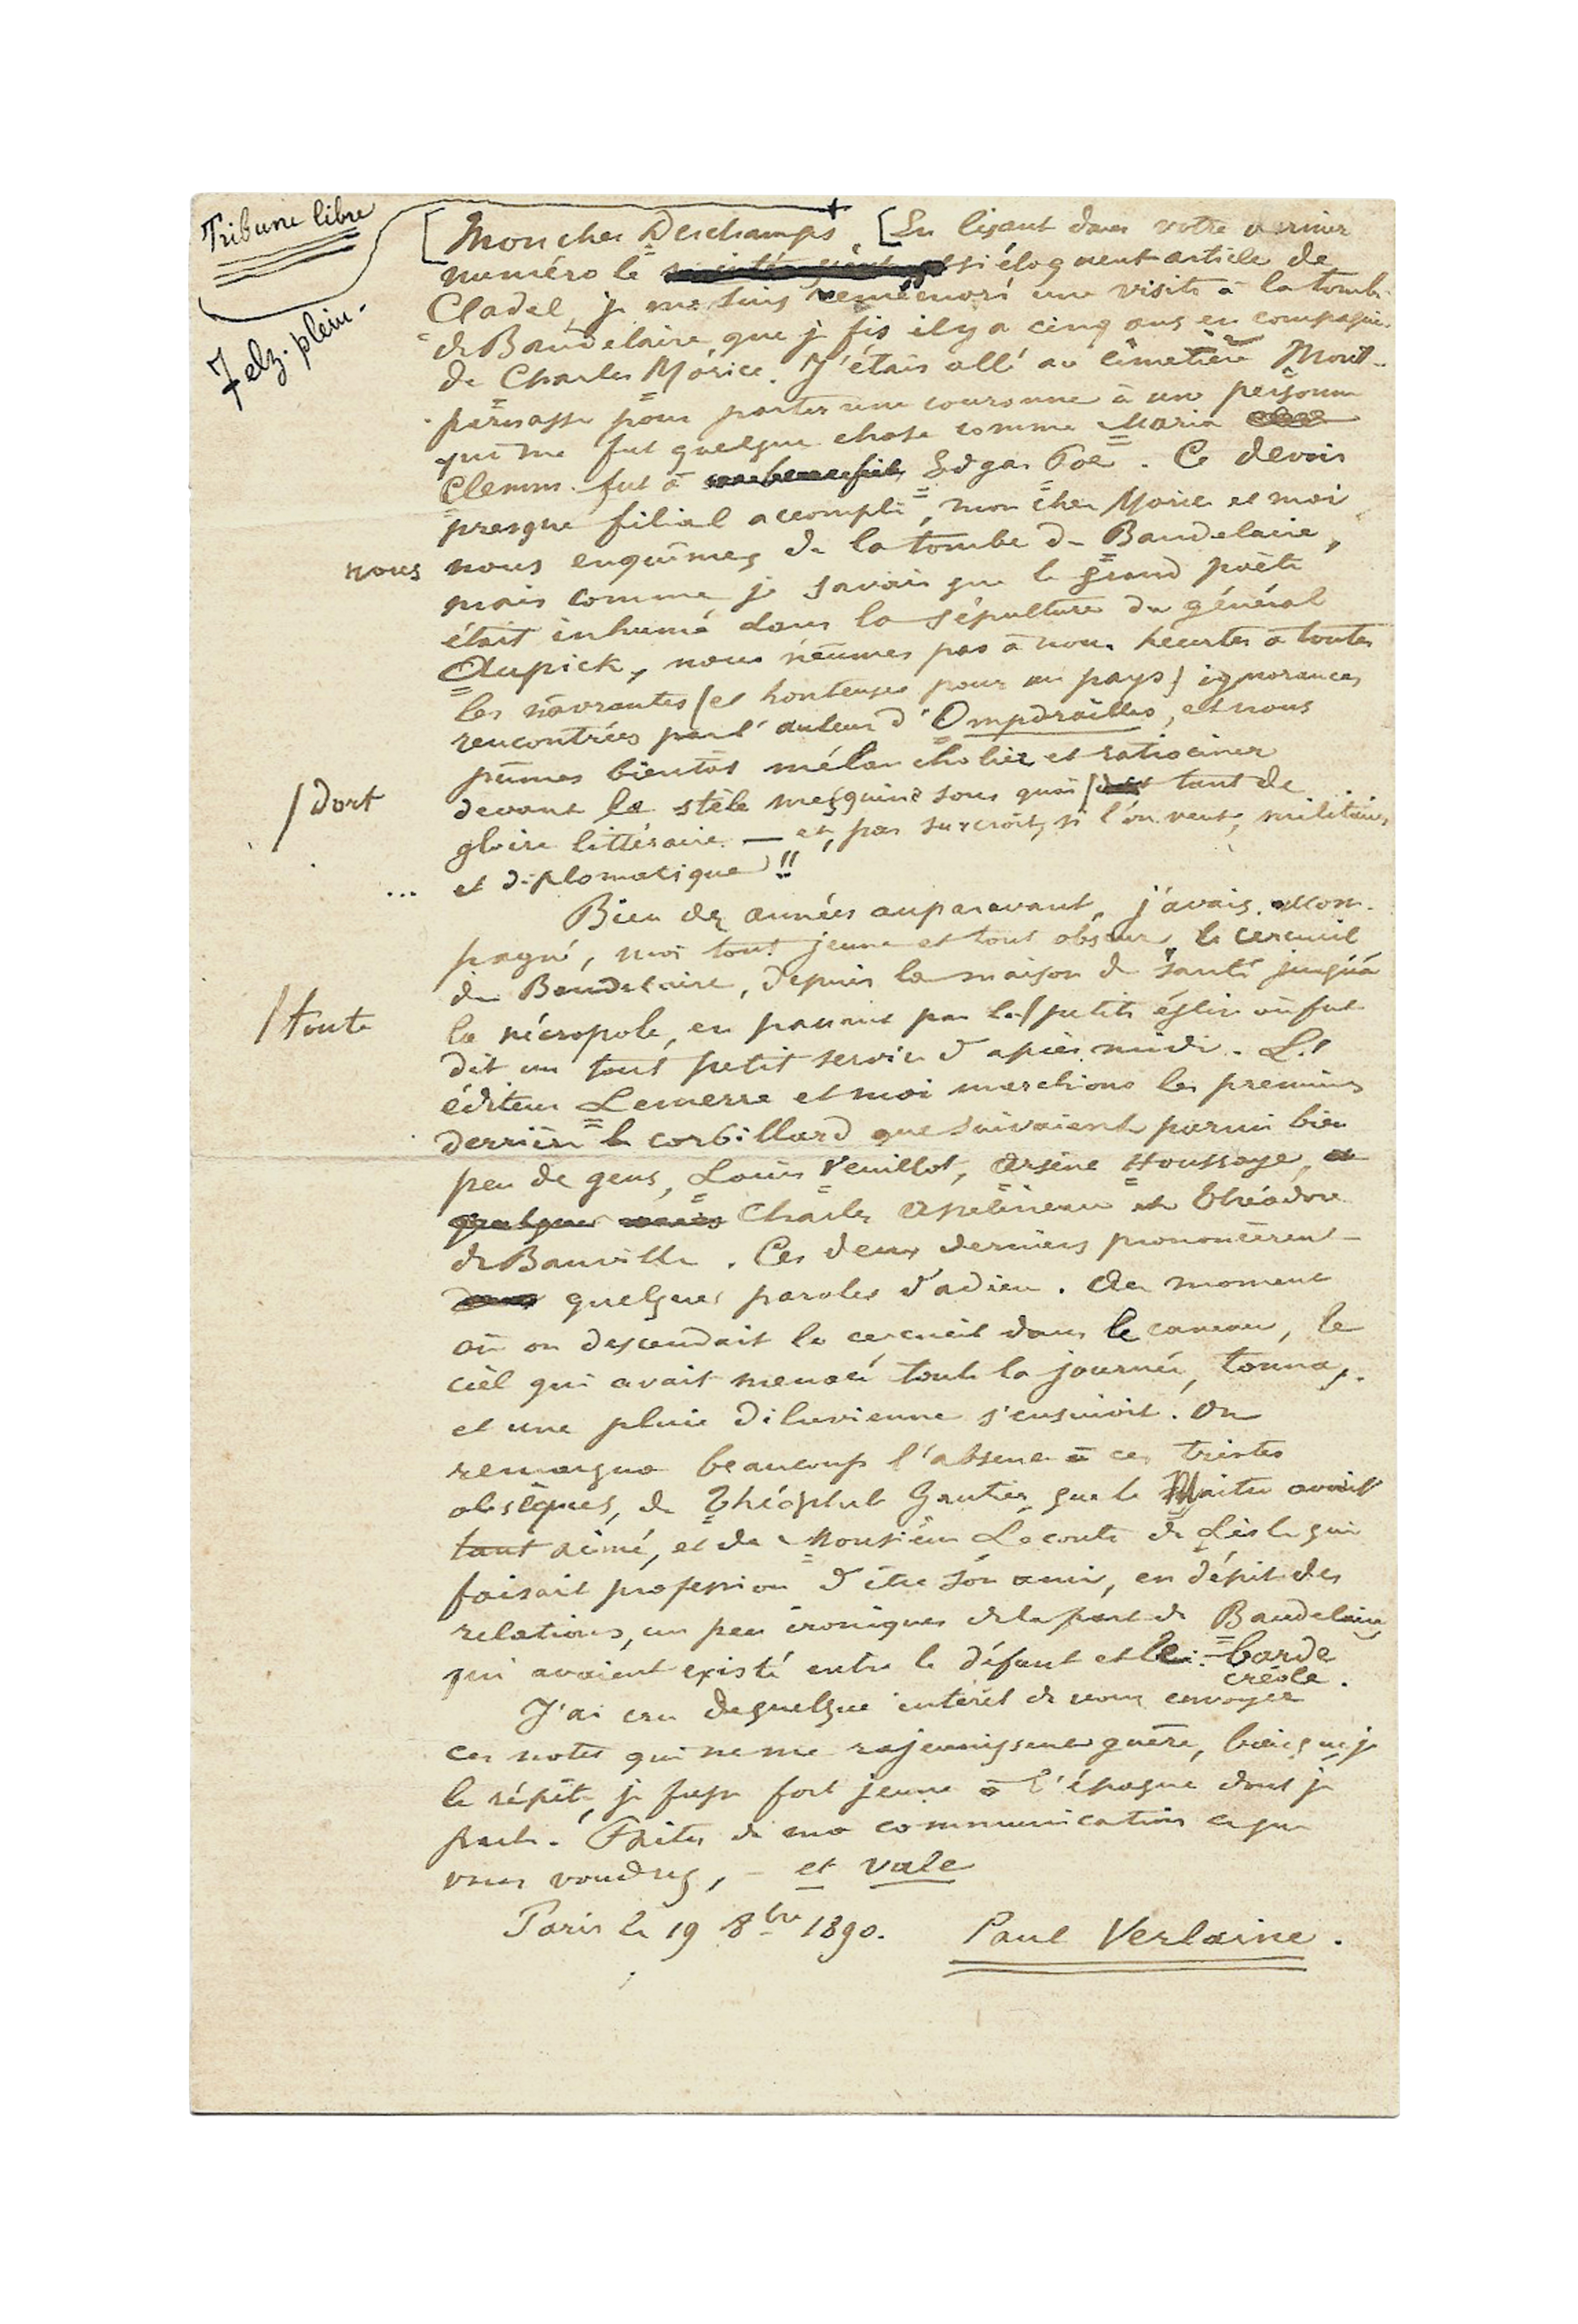 Tribune libre
7 elz. plein.
Mon cher Deschamps, En lisant dans votre dernier
numéro le si éloquent article de
Cladel, je me suis remémoré une visite à la tombe
de Baudelaire que je fis il y a cinq ans en compagnie
de Charles Morice. J'étais allé au cimetière Mont-
parnasse pour porter une couronne à une personne
qui me fut quelque chose comme Maria
Clemm fut à Edgar Poë. Ce devoir
presque filial accompli, mon cher Morice et moi
nous
nous enquîmes de la tombe de Baudelaire,
mais comme je savais que le grand poète
était inhumé dans la sépulture du général
Aupick, nous n'eûmes pas à nous heurter à toutes
les navrantes (et honteuses pour un pays) ignorances
rencontrées par l'auteur d'Ompdrailles, et nous
pûmes bientôt mélancholier et ratiociner
/ dort
devant la stèle mesquine sous quoi / tant de
gloire littéraire — et, par surcroît, si l'on veut, militaire
... et diplomatique !!
Bien des années auparavant, j'avais accom-
pagné, moi tout jeune et tout obscur, le cercueil
de Baudelaire, depuis la maison de santé jusqu'à
/ toute
la nécropole, en passant par la / petite église où fut
dit un tout petit service d'après-midi. L'
éditeur Lemerre et moi marchions les premiers
derrière le corbillard que suivaient parmi bien
peu de gens, Louis Veuillot, Arsène Houssaye,
Charles Asselineau et Théodore
de Banville. Ces deux derniers prononcèrent
quelques paroles d'adieu. Au moment
où on descendait le cercueil dans le caveau, le
ciel qui avait menacé toute la journée, tonna,
et une pluie diluvienne s'ensuivit. On
remarqua beaucoup l'absence à ces tristes
obsèques, de Théophile Gautier, que le Maître avait
tant aimé, et de Monsieur Leconte de Lisle qui
faisait profession d'être son ami, en dépit des
relations, un peu ironiques de la part de Baudelaire
qui avaient existé entre le défunt et le barde
créole.
J'ai cru de quelque intérêt de vous envoyer
ces notes qui ne me rajeunissent guère, bien que je
le répète, je fusse fort jeune à l'époque dont je
parle. Faites de ma communication ce que
vous voudrez, — et vale
Paris le 19 8bre 1890. Paul Verlaine.